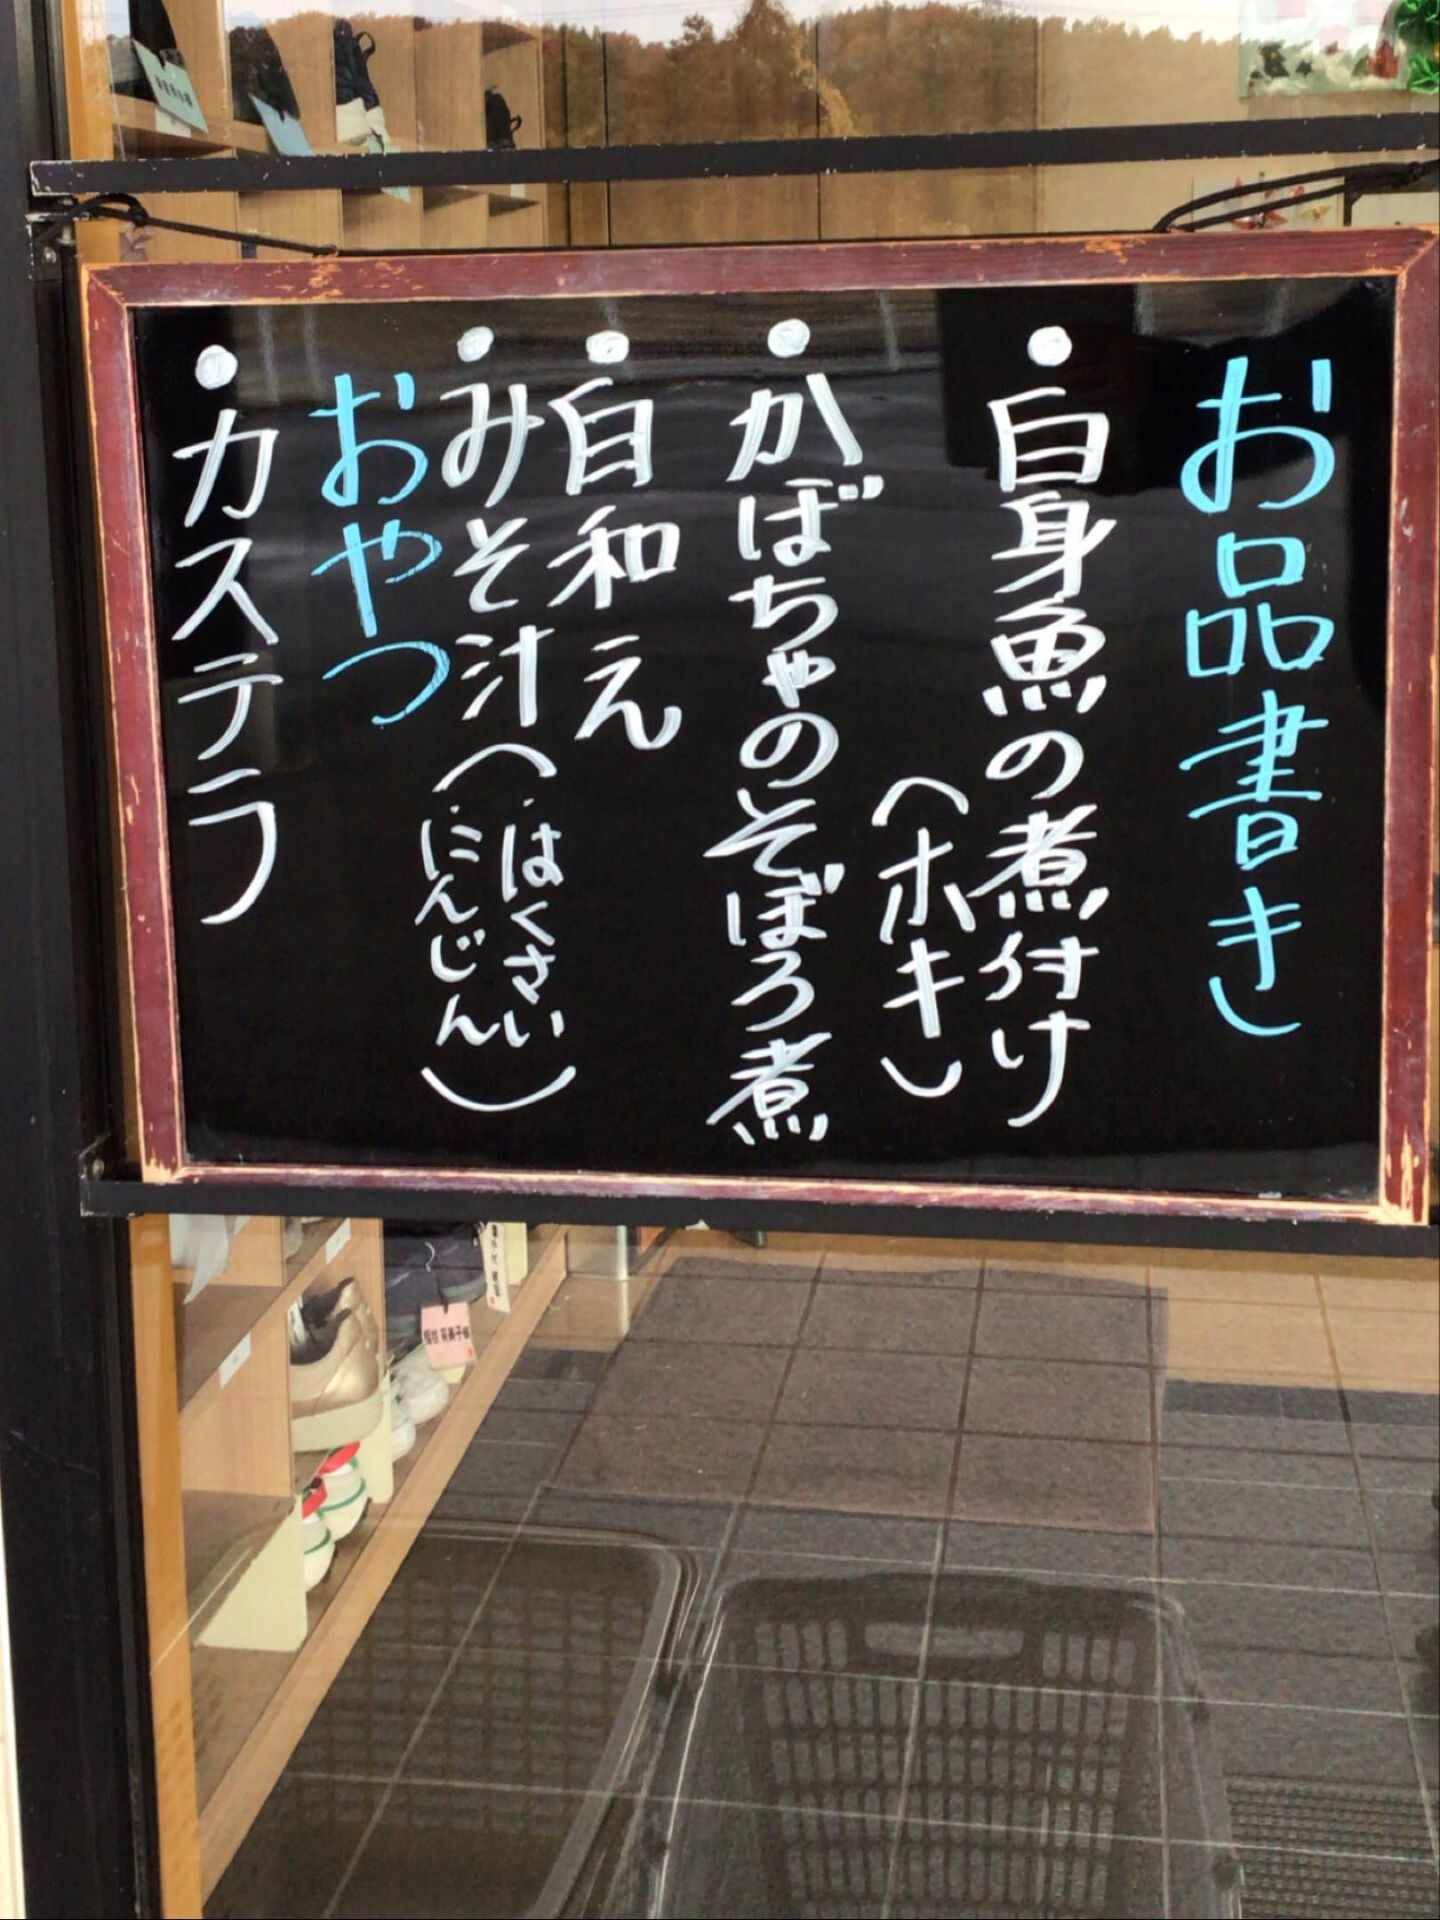 お品書き
・白身魚の煮付け
(ホキ)
・かぼちゃのそぼろ煮
・白和え
・みそ汁(・はくさい
・にんじん)
おやつ
・カステラ